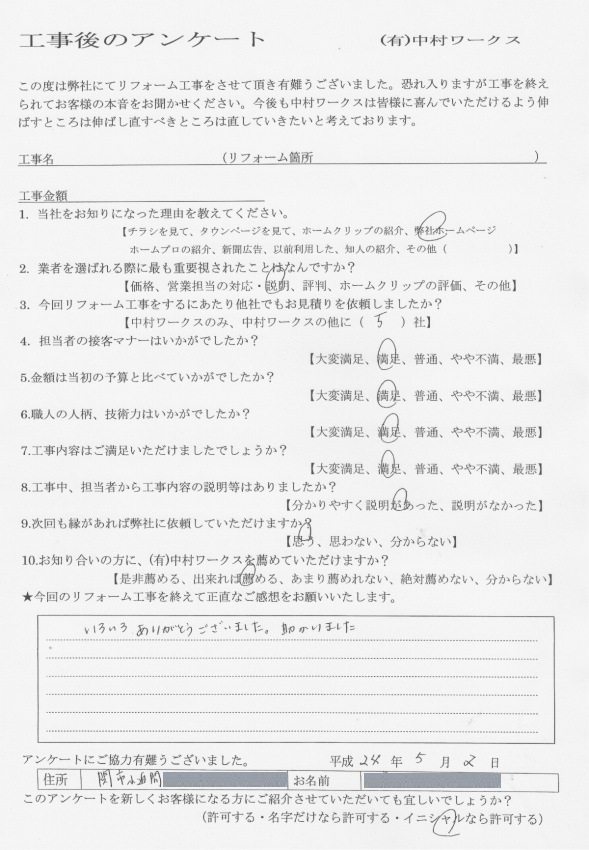 工事後のアンケート　(有)中村ワークス
この度は弊社にてリフォーム工事をさせて頂き有難うございました。恐れ入りますが工事を終え
られてお客様の本音をお聞かせください。今後も中村ワークスは皆様に喜んでいただけるよう伸
ばすところは伸ばし直すべきところは直していきたいと考えております。
工事名　(リフォーム箇所　)
工事金額
1. 当社をお知りになった理由を教えてください。
【チラシを見て、タウンページを見て、ホームクリップの紹介、弊社ホームページ
ホームプロの紹介、新聞広告、以前利用した、知人の紹介、その他（　）】
2. 業者を選ばれる際に最も重要視されたことはなんですか？
【価格、営業担当の対応・説明、評判、ホームクリップの評価、その他】
3. 今回リフォーム工事をするにあたり他社でもお見積りを依頼しましたか？
【中村ワークスのみ、中村ワークスの他に（ 5 ）社】
4. 担当者の接客マナーはいかがでしたか？
【大変満足、満足、普通、やや不満、最悪】
5.金額は当初の予算と比べていかがでしたか？
【大変満足、満足、普通、やや不満、最悪】
6.職人の人柄、技術力はいかがでしたか？
【大変満足、満足、普通、やや不満、最悪】
7.工事内容はご満足いただけましたでしょうか？
【大変満足、満足、普通、やや不満、最悪】
8.工事中、担当者から工事内容の説明等はありましたか？
【分かりやすく説明があった、説明がなかった】
9.次回も縁があれば弊社に依頼していただけますか？
【思う、思わない、分からない】
10.お知り合いの方に、(有)中村ワークスを薦めていただけますか？
【是非薦める、出来れば薦める、あまり薦めれない、絶対薦めない、分からない】
★今回のリフォーム工事を終えて正直なご感想をお願いいたします。
いろいろ ありがとうございました。助かりました
アンケートにご協力有難うございました。　平成 24 年 5 月 2 日
住所　関市小迫間　お名前
このアンケートを新しくお客様になる方にご紹介させていただいても宜しいでしょうか？
（許可する・名字だけなら許可する・イニシャルなら許可する）